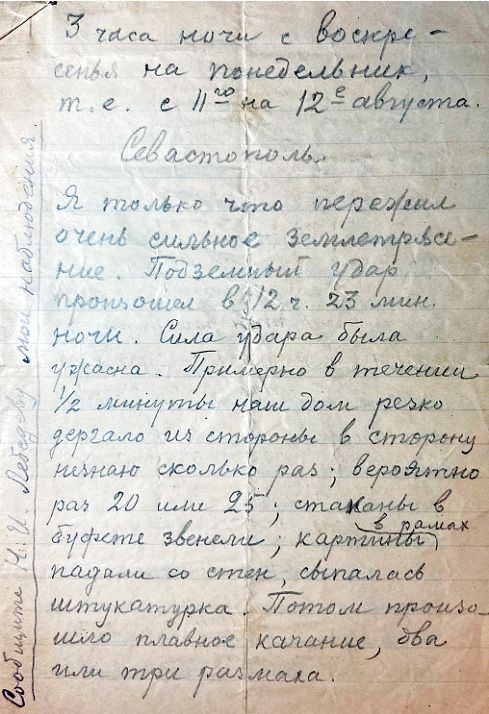 3 часа ночи с воскре-
сенья на понедельник,
т.е. с 11го на 12е августа.
Севастополь.
Я только что пережил
очень сильное землетрясе-
ние. Подземный удар
произошел в 12 ч. 23 мин.
ночи. Сила удара была
ужасна. Примерно в течении
1/2 минуты наш дом резко
дергало из стороны в сторону
незнаю сколько раз; вероятно
раз 20 или 25; стаканы в
буфете звенели; картины в рамах
падали со стен, сыпалась
штукатурка. Потом произо-
шло плавное качание, два
или три размаха.
Сообщите Н. И. Лебедеву мои наблюдения.